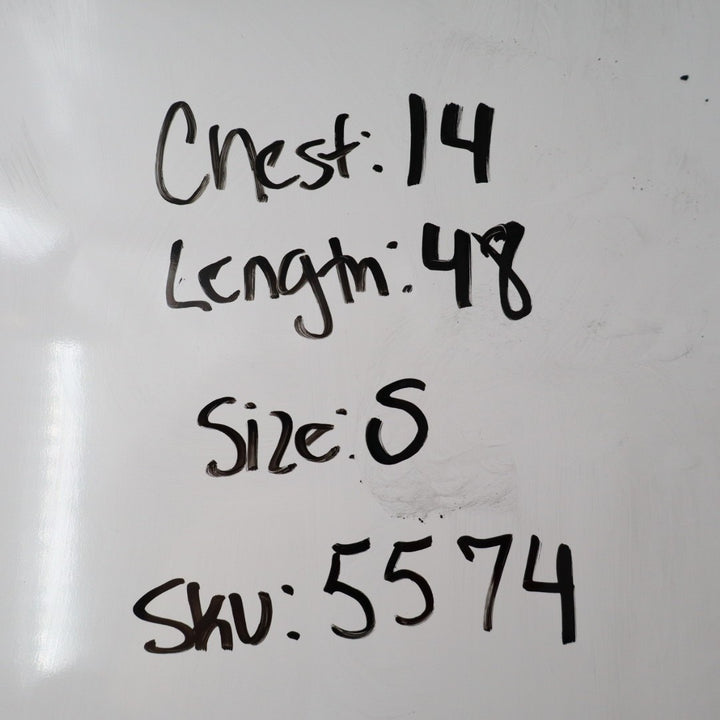 Chest: 14
Length: 48
Size: S
SKU: 5574